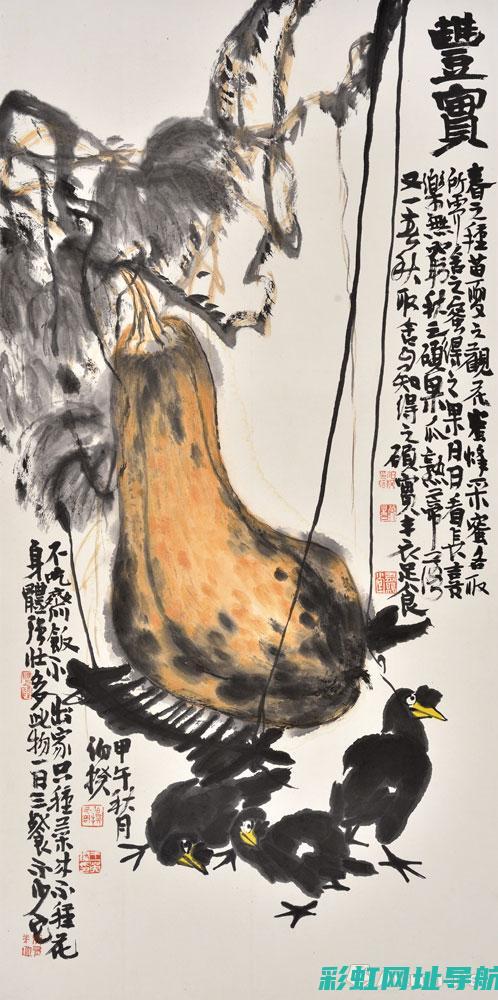 豐實
春之種苗夏之觀花蜜蜂采蜜各取
所需舍之蜜得之果月日看長喜
樂無窮秋之碩果瓜熟蒂
又一春秋取舍与知得之碩實丰衣足食
不吃齋飯不出家只種菜不種花
身體強壯多此物一日三餐不少它
甲午秋月
伯揆
彩虹网址导航